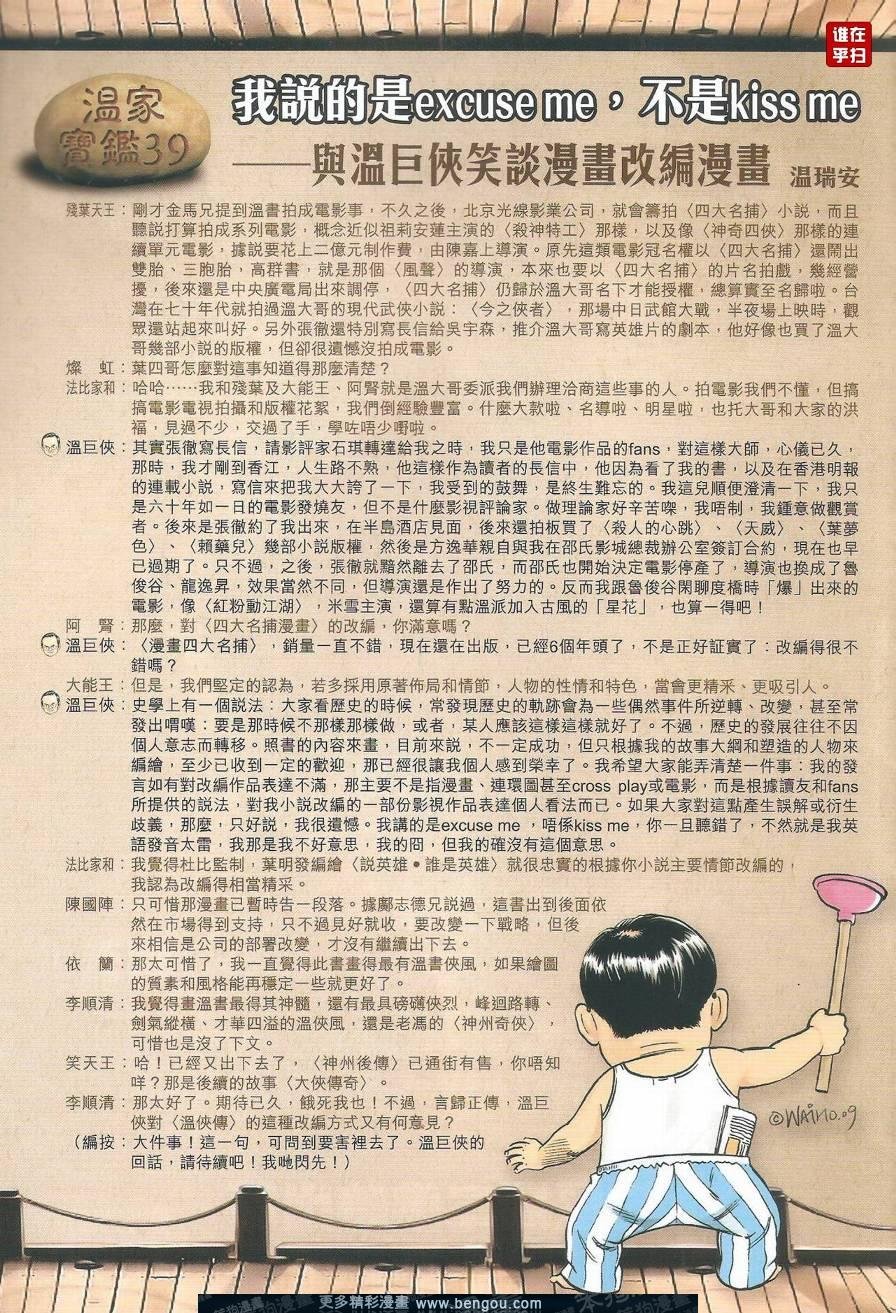 谁在
乎扫
溫家
寶鑑39
我説的是excuse me,不是kiss me
——與溫巨俠笑談漫畫改編漫畫 温瑞安
殘葉天王:剛才金馬兄提到溫書拍成電影事,不久之後,北京光線影業公司,就會籌拍〈四大名捕〉小説,而且
聽説打算拍成系列電影,概念近似祖莉安蓮主演的〈殺神特工〉那樣,以及像〈神奇四俠〉那樣的連
續單元電影,據説要花上二億元制作費,由陳嘉上導演。原先這類電影冠名權以〈四大名捕〉還鬧出
雙胎、三胞胎,高群書,就是那個〈風聲〉的導演,本來也要以〈四大名捕〉的片名拍戲,幾經營
擾,後來還是中央廣電局出來調停,〈四大名捕〉仍歸於溫大哥名下才能授權,總算實至名歸啦。台
灣在七十年代就拍過溫大哥的現代武俠小説:〈今之俠者〉,那場中日武館大戰,半夜場上映時,觀
眾還站起來叫好。另外張徹還特別寫長信給吳宇森,推介溫大哥寫英雄片的劇本,他好像也買了溫大
哥幾部小説的版權,但卻很遺憾沒拍成電影。
燦　虹:葉四哥怎麼對這事知道得那麼清楚?
法比家和:哈哈……我和殘葉及大能王、阿腎就是溫大哥委派我們辦理洽商這些事的人。拍電影我們不懂,但搞
搞電影電視拍攝和版權花絮,我們倒經驗豐富。什麼大款啦、名導啦、明星啦,也托大哥和大家的洪
福,見過不少,交過了手,學咗唔少嘢啦。
溫巨俠:其實張徹寫長信,請影評家石琪轉達給我之時,我只是他電影作品的fans,對這樣大師,心儀已久,
那時,我才剛到香江,人生路不熟,他這樣作為讀者的長信中,他因為看了我的書,以及在香港明報
的連載小説,寫信來把我大大誇了一下,我受到的鼓舞,是終生難忘的。我這兒順便澄清一下,我只
是六十年如一日的電影發燒友,但不是什麼影視評論家。做理論家好辛苦㗎,我唔制,我鍾意做觀賞
者。後來是張徹約了我出來,在半島酒店見面,後來還拍板買了〈殺人的心跳〉、〈天威〉、〈葉夢
色〉、〈賴藥兒〉幾部小説版權,然後是方逸華親自與我在邵氏影城總裁辦公室簽訂合約,現在也早
已過期了。只不過,之後,張徹就黯然離去了邵氏,而邵氏也開始決定電影停產了,導演也換成了魯
俊谷、龍逸昇,效果當然不同,但導演還是作出了努力的。反而我跟魯俊谷閑聊度橋時「爆」出來的
電影,像〈紅粉動江湖〉,米雪主演,還算有點溫派加入古風的「星花」,也算一得吧!
阿　腎:那麼,對〈四大名捕漫畫〉的改編,你滿意嗎?
溫巨俠:〈漫畫四大名捕〉,銷量一直不錯,現在還在出版,已經6個年頭了,不是正好証實了:改編得很不
錯嗎?
大能王:但是,我們堅定的認為,若多採用原著佈局和情節,人物的性情和特色,當會更精采、更吸引人。
溫巨俠:史學上有一個説法:大家看歷史的時候,常發現歷史的軌跡會為一些偶然事件所逆轉、改變,甚至常
發出喟嘆:要是那時候不那樣那樣做,或者,某人應該這樣這樣就好了。不過,歷史的發展往往不因
個人意志而轉移。照書的內容來畫,目前來説,不一定成功,但只根據我的故事大綱和塑造的人物來
編繪,至少已收到一定的歡迎,那已經很讓我個人感到榮幸了。我希望大家能弄清楚一件事:我的發
言如有對改編作品表達不滿,那主要不是指漫畫、連環圖甚至cross play或電影,而是根據讀友和fans
所提供的説法,對我小説改編的一部份影視作品表達個人看法而已。如果大家對這點產生誤解或衍生
歧義,那麼,只好説,我很遺憾。我講的是excuse me ,唔係kiss me,你一旦聽錯了,不然就是我英
語發音太雷,我那是我不好意思,我的囧,但我的確沒有這個意思。
法比家和:我覺得杜比監制,葉明發編繪〈説英雄•誰是英雄〉就很忠實的根據你小説主要情節改編的,
我認為改編得相當精采。
陳國陣:只可惜那漫畫已暫時告一段落。據鄺志德兄説過,這書出到後面依
然在市場得到支持,只不過見好就收,要改變一下戰略,但後
來相信是公司的部署改變,才沒有繼續出下去。
依　蘭:那太可惜了,我一直覺得此書畫得最有溫書俠風,如果繪圖
的質素和風格能再穩定一些就更好了。
李順清:我覺得畫溫書最得其神髓,還有最具磅礡俠烈,峰迴路轉、
劍氣縱橫、才華四溢的溫俠風,還是老馮的〈神州奇俠〉,
可惜也是沒了下文。
笑天王:哈!已經又出下去了,〈神州後傳〉已通街有售,你唔知
咩?那是後續的故事〈大俠傳奇〉。
李順清:那太好了。期待已久,餓死我也!不過,言歸正傳,溫巨
俠對〈溫俠傳〉的這種改編方式又有何意見?
(編按:大件事!這一句,可問到要害裡去了。溫巨俠的
回話,請待續吧!我哋閃先!)
©WAIHO.09
更多精彩漫畫 www.bengou.com